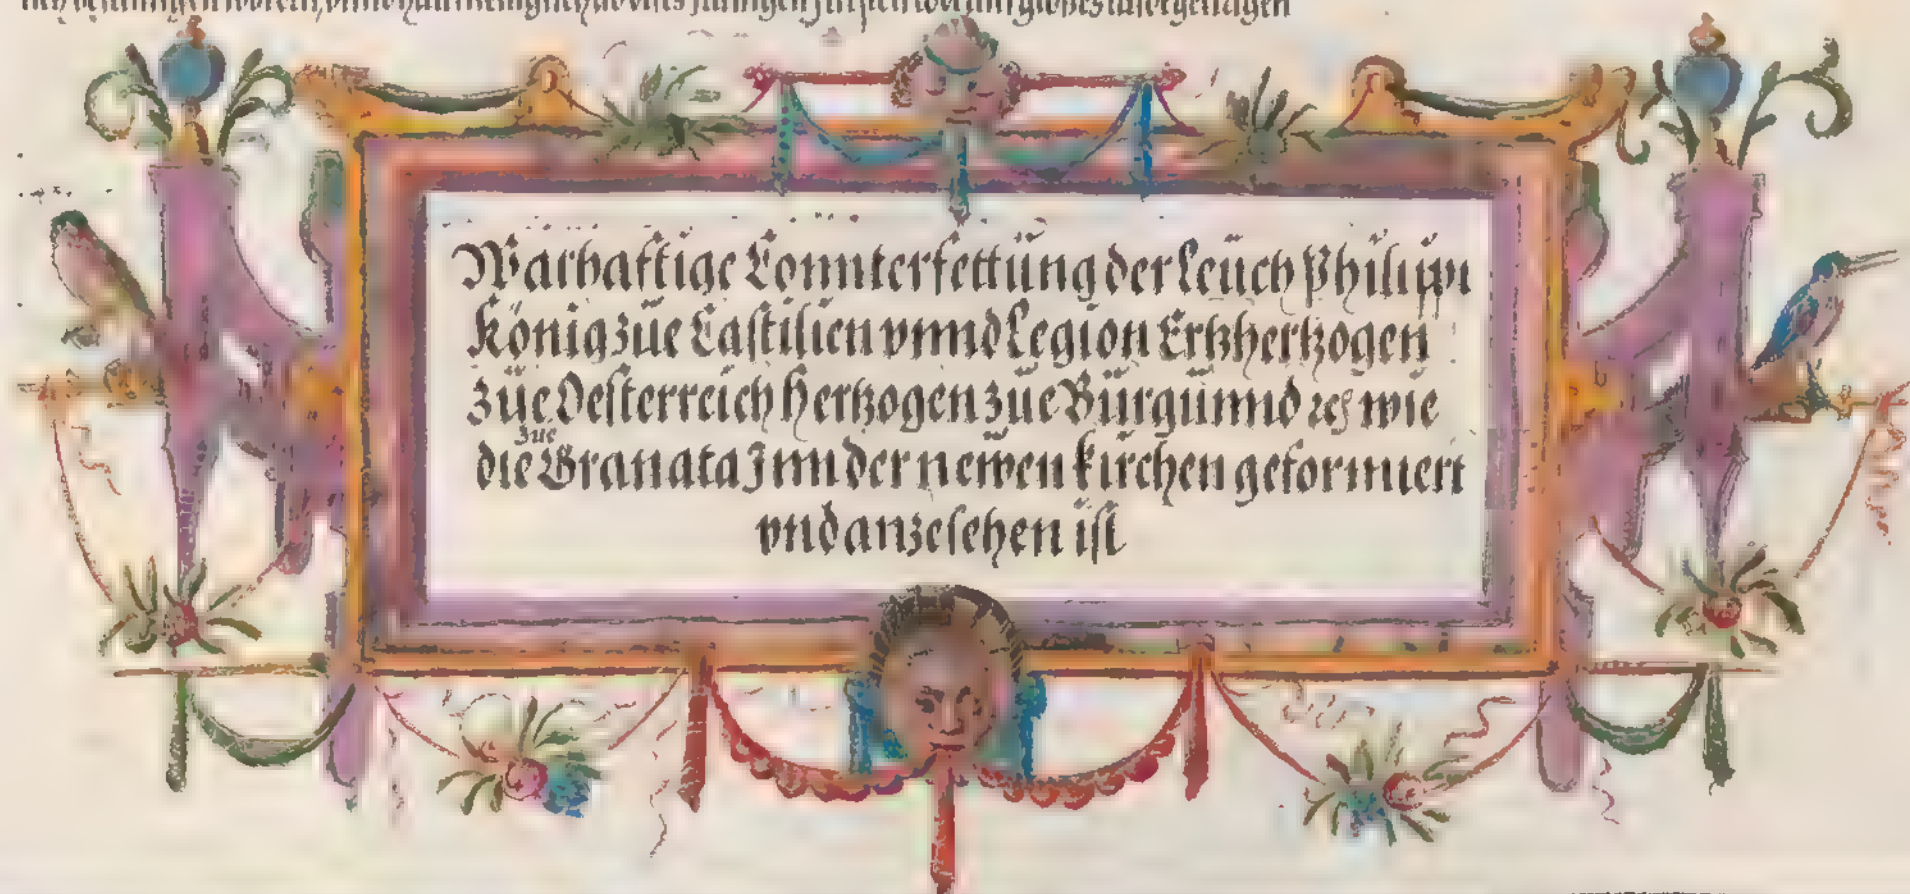 Warhafftige Connterfettüng der Leüch Philippi
König züe Castilien vnnd Legion Ertzhertzogen
züe Oesterreich Hertzogen züe Bürgünnd ꝛc wie
die züe Granata Jnn der newen kirchen geformiert
vnd anzesehen ist